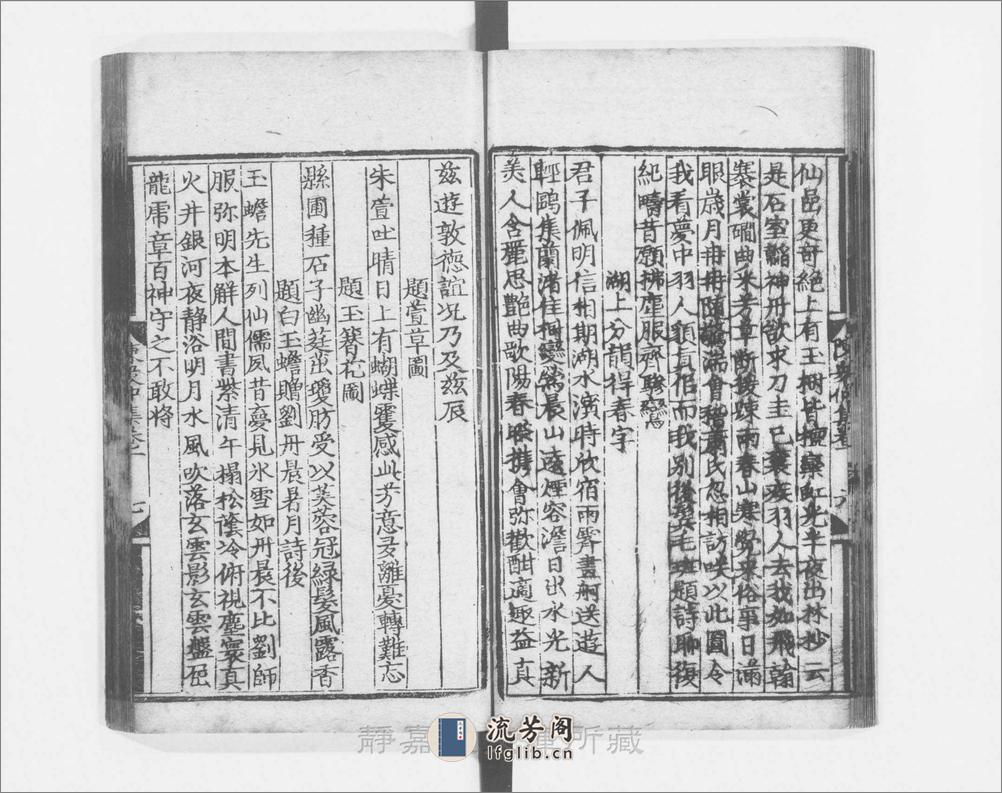 仙邑更奇絕上有玉樹皆檀欒虹光半夜出林抄云
是石室韜神丹欲求刀圭已衰疾羽人去我如飛翰
褰裳磵曲采芳草断猨踈雨春山寒覺来俗事日滿
眼歳月冉冉隨驚湍會稽蕭氏忽相訪咲以此圖令
我看夢中羽人顔真作而我別後髩毛斑題詩聊復
紀疇昔願拂塵服齊驂鸞
湖上分韻得春字
君子佩明信相期湖水濱時欣宿雨霽畫舸送遊人
輕鷗集蘭渚佳樹變鶯晨山遠煙容澹日出水光新
美人含麗思艶曲歌陽春聮携會弥歡酣適趣益真
兹遊敦德誼况乃及兹辰
題萱草圖
朱萱吐晴日上有蝴蝶雙感此芳意多離憂轉難忘
題玉簪花圖
縣圃種石子幽莛茁瓊肪受以芙蓉冠緑髮風露香
題白玉蟾贈劉丹晨暑月詩後
玉蟾先生列仙儒夙昔夢見氷雪如丹晨不比劉師
服弥明本解人間書紫清午搨松蔭冷俯視塵寰真
火井銀河夜静浴明月水風吹落玄雲影玄雲盤屈
龍虎章百神守之不敢将
七
六
静嘉 所藏
流芳阁
lfglib.cn